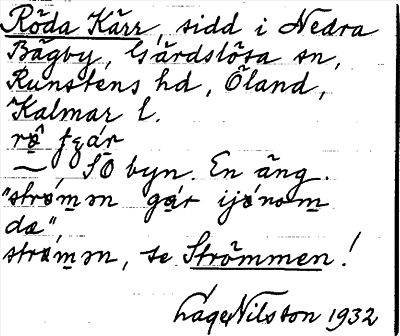 Röda Kärr, sidd i Nedra
Bägby, Gärdslösa sn,
Runstens hd, Öland,
Kalmar l.
SO byn. En äng.
"strǿmən går ijǿnom
da",
strǿmən, se Strömmen!
Låge Nilston 1932